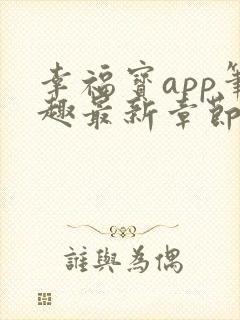 幸福寶app筆
趣最新章節
誰與為偶